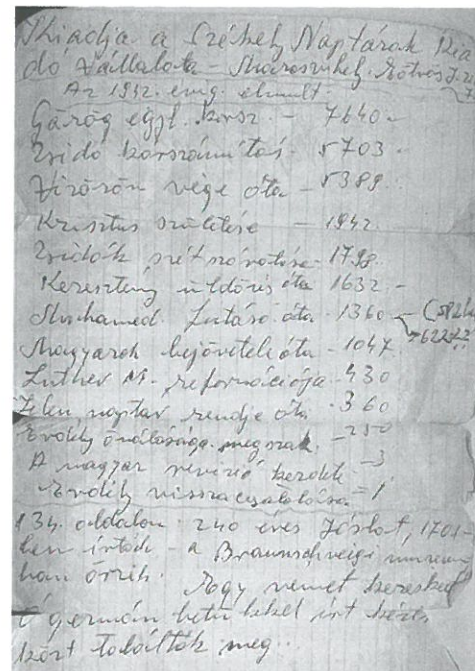 Kiadja a Székely Naptárak Kia
dó Vállalata - Marosvhely. Eötvös J. u.
Az 1942. évig elmult.
Görög egyh. korsz. - 7640 -
Zsidó korszámitás - 5703 -
Vizözön vége óta - 5389 -
Krisztus születése - 1942.
Zsidók szétszóródása - 1798.
Keresztény üldözés óta 1632. -
Muhamed futása óta - 1360 - (582
622
Magyarok bejövetele óta - 1047.
Luther M. reformációja - 430
Jelen naptár rendje óta - 360
Erdély önállósága megszak. - 250
A magyar revizió kezdete - 3
Erdély visszacsatolása - 1
134. oldalon 240 éves Jóslat, 1701-
ben irták - a Braunschweigi muzeum
ban őrzik. Egy német keresked
ő germán betűkkel irt
találták meg...